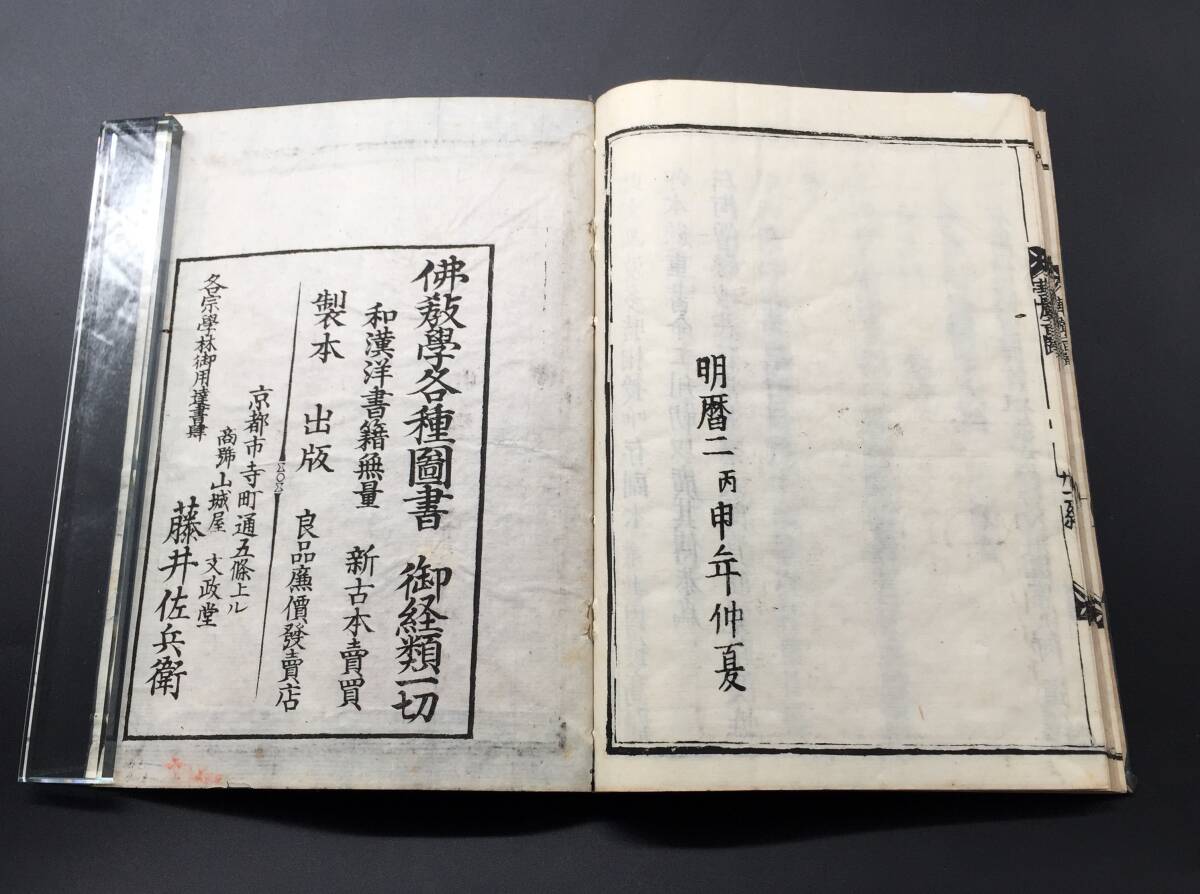 明暦二丙申年仲夏
佛教學各種圖書 御経類一切
和漢洋書籍無量 新古本賣買
製本 出版 良品廉價發賣店
京都市寺町通五條上ル
商號 山城屋 文政堂
各宗學林御用達書肆 藤井佐兵衛